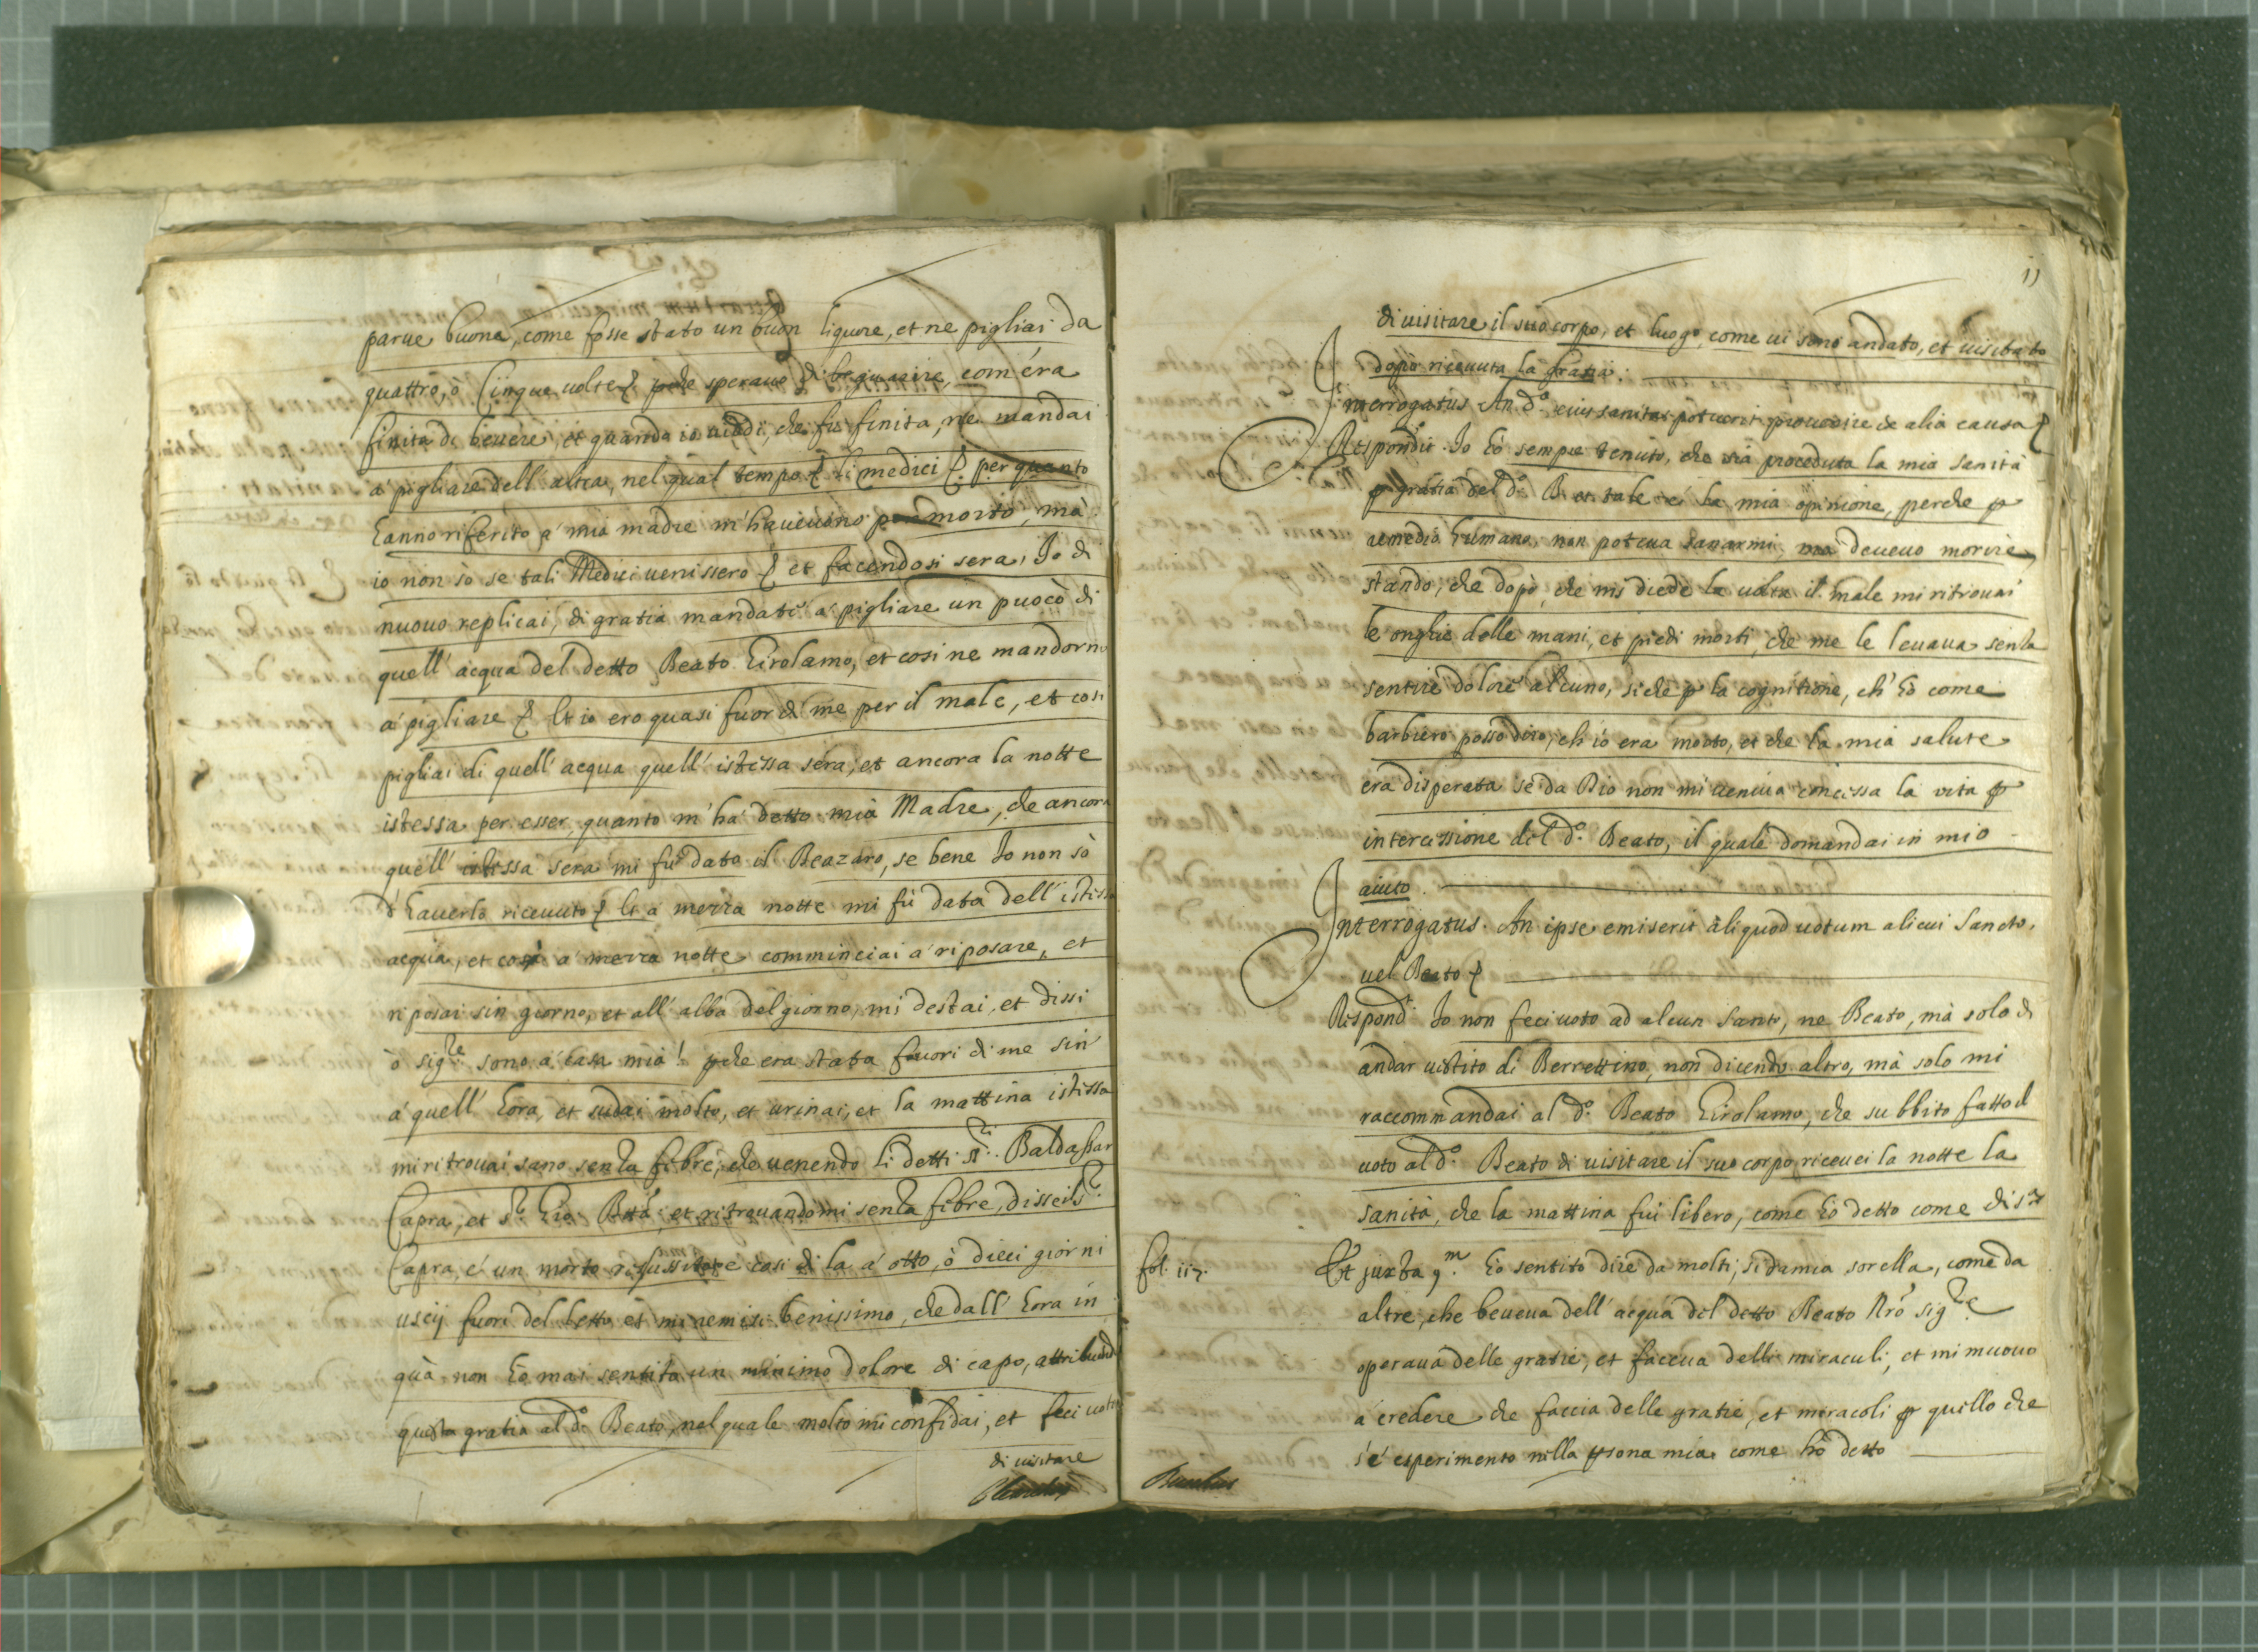 parue buona, come fosse stato un buon liquore, et ne pigliai da
quattro, ò Cinque uolte perche sperauo di guarire, com'éra
finita di beuere, et quando io uiddi, che fu finita, ne mandai
a' pigliare dell'altra, nel qual tempo li medici per quanto
hanno riferito a' mia madre m'haueuano per morto, mà
io non sò se tali Medici uenissero et facendosi sera, Io di
nuouo replicai, di gratia mandate a' pigliare un puoco di
quell'acqua del detto Beato Girolamo, et cosi ne mandorno
a' pigliare Et io ero quasi fuor di me per il male, et cosi
pigliai di quell'acqua quell'istessa sera, et ancora la notte
istessa per esser, quanto m'ha' detto mia Madre, che ancora
quell'istessa sera mi fu dato il Beazaro, se bene Io non sò
d'hauerlo riceuuto Et a' mezza notte mi fù data dell'istessa
acqua, et cosi a' mezza notte comminciai a' riposare, et
riposai sin giorno, et all'alba del giorno, mi destai, et dissi
ò sig.re sono a' casa mia! pche era stata fuori di me sin'
a' quell'hora, et sudai molto, et urinai, et la mattina istessa
mi ritrouai sano senza febre, che uenendo li detti ss.ri Baldassar
Capra, et s.r Gio Batta, et ritrouandomi senza febre, disse il s.r
Capra, é un morto risussitato e cosi di la a' otto, ò dieci giorni
uscij fuori del letto et mi remisi benissimo, che dall'hora in
quà non hò mai sentito un minimo dolore di capo, attribuendo
questa gratia al d.o Beato, nel quale molto mi confidai, et feci uoto
di uisitare
11
di uisitare il suo corpo, et luogo, come ui sono andato, et uisitato
dopò riceuuta la gratia.
Interrogatus An d.a eius sanitas potuerit prouenire ex alia causa
Respondit Io hò sempre tenuto, che sia proceduta la mia sanità
p gratia del d.o B. et tale é la mia opinione, perche p
remedio humano, non poteua sanarmi, ma doueuo morire,
stando, che dopò, che mi diede la uolta il male mi ritrouai
le onghie delle mani, et piedi morti, che me le leuaua senza
sentire dolore alcuno, siche p la cognitione, ch'hò come
barbiero posso dire, ch'io era morto, et che la mia salute
era disperata se da Dio non mi ueniua concessa la vita p
intercessione del d.o Beato, il quale domandai in mio
aiuto.
Interrogatus. An ipse emiserit aliquod uotum alicui Sancto,
uel Beato
Respond.t Io non feci uoto ad alcun Santo, ne Beato, mà solo di
andar uestito di Berrettino, non dicendo altro, mà solo mi
raccommandai al d.o Beato Girolamo, che subbito fatto il
uoto al d.o Beato di uisitare il suo corpo riceuei la notte la
sanità, che la mattina fui libero, come hò detto come di s.a
fol. 117.
Et juxta 9.m hò sentito dire da molti, si da mia sorella, come da
altre, che beueua dell'acqua del detto Beato Nr̃o sig.re
operaua delle gratie, et faceua delli miraculi, et mi muouo
a' credere che faccia delle gratie, et miracoli p quello che
s'é esperimento nella psona mia come hò detto